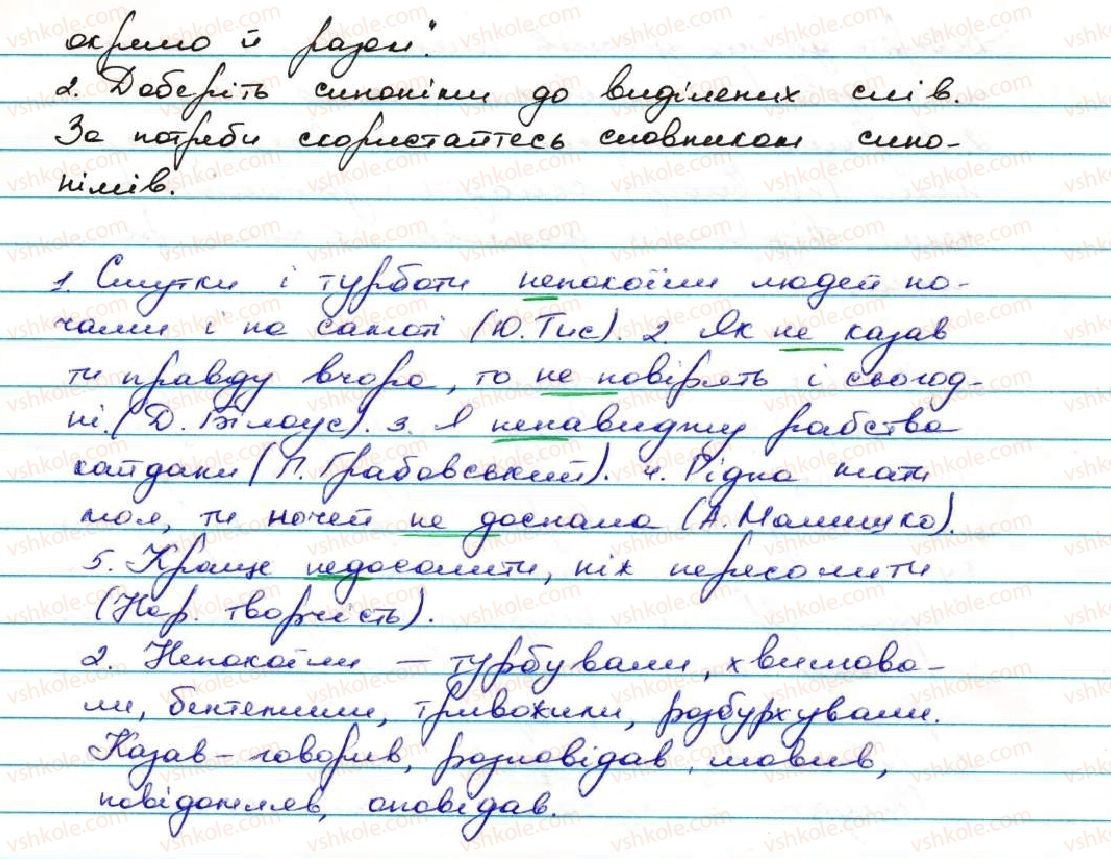 окремо й разом".
2. Доберіть синоніми до виділених слів.
За потреби скористайтесь словником сино-
німів.
1. Смутки і турботи непокоїли людей но-
чами і на самоті (Ю. Тис). 2. Як не казав
ти правду вчора, то не повірять і сьогод-
ні. (Д. Білоус). 3. Я ненавиджу рабства
кайдани (П. Грабовський). 4. Рідна мати
моя, ти ночей не доспала (А. Малишко).
5. Краще недосолити, ніж пересолити
(Нар. творчість).
2. Непокоїли – турбували, хвилюва-
ли, бентежили, тривожили, розбурхували.
Казав – говорив, розповідав, мовив,
повідомляв, оповідав.